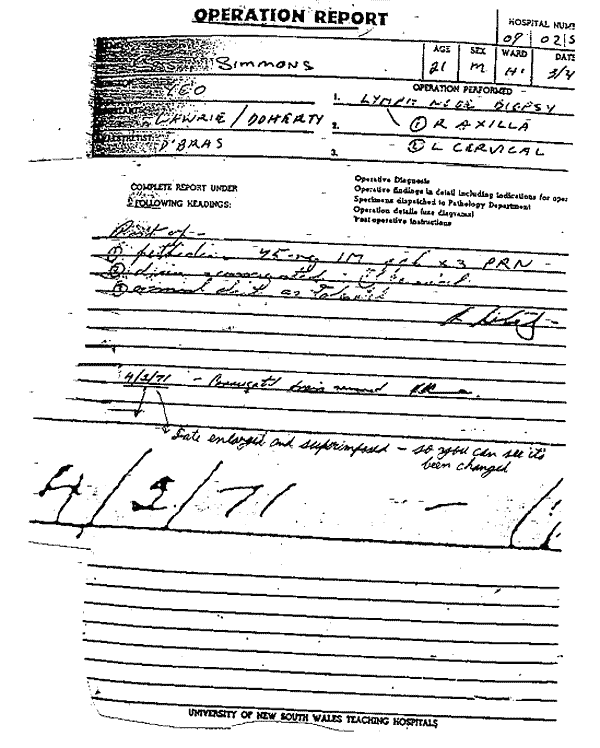 OPERATION REPORT
HOSPITAL NUM
09 02 5
AGE SEX WARD DATE
SIMMONS
21 M H1 3/4
YEO
OPERATION PERFORMED
1. LYMPH NODE BIOPSY
LAWRIE / DOHERTY
2. ① R AXILLA
D'BRAS
3. ② L CERVICAL
COMPLETE REPORT UNDER
FOLLOWING HEADINGS:
Operative Diagnosis
Operative findings in detail including indications for oper
Specimens dispatched to Pathology Department
Operation details (use diagrams)
Post operative instructions
Post op -
① pethidine 75 mg IM x 3 PRN -
② drain
③ normal diet as tolerated
4/3/71 - Corrugated drain removed
Date enlarged and superimposed - so you can see it's
been changed
4/3/71 -
UNIVERSITY OF NEW SOUTH WALES TEACHING HOSPITALS